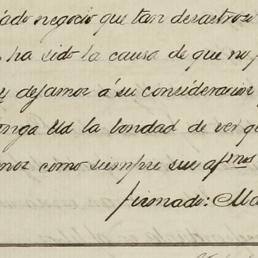 ado negocio que tan desastroz
ha sido la causa de que no p
y dejamos á su consideracion
onga Ud la bondad de ver qu
mos como siempre sus afmos
firmado: Ma